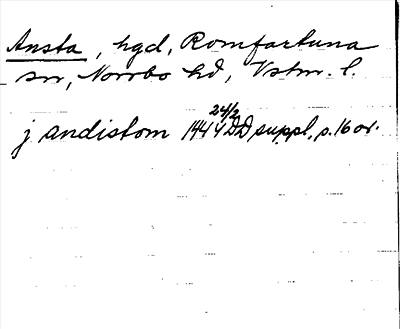 Ansta, hgd, Romfartuna
sn, Norrbo hd, Vstm. l.
j andistom 1444 24/2 DD suppl. s. 16 or.